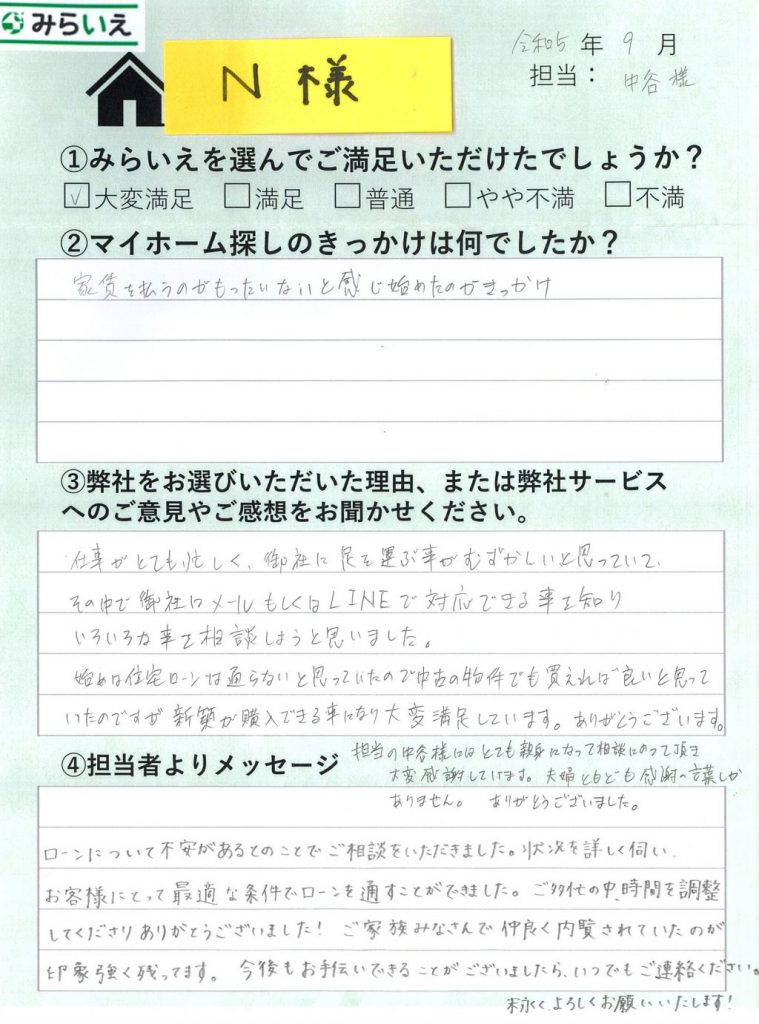 みらいえ
N 様
令和5 年 9 月
担当: 中谷 様
①みらいえを選んでご満足いただけたでしょうか?
☑大変満足 □満足 □普通 □やや不満 □不満
②マイホーム探しのきっかけは何でしたか?
家賃を払うのがもったいないと感じ始めたのがきっかけ
③弊社をお選びいただいた理由、または弊社サービス
へのご意見やご感想をお聞かせください。
仕事がとても忙しく、御社に足を運ぶ事がむずかしいと思っていて、
その中で御社はメールもしくはLINEで対応できる事を知り
いろいろな事を相談しようと思いました。
始めは住宅ローンは通らないと思っていたので中古の物件でも買えれば良いと思って
いたのですが新築が購入できる事になり大変満足しています。ありがとうございます。
担当の中谷様にはとても親身になって相談にのって頂き
大変感謝しています。夫婦ともども感謝の言葉しか
ありません。 ありがとうございました。
④担当者よりメッセージ
ローンについて不安があるとのことでご相談をいただきました。状況を詳しく伺い、
お客様にとって最適な条件でローンを通すことができました。ご多忙の中、時間を調整
してくださりありがとうございました! ご家族みなさんで仲良く内覧されていたのが
印象強く残ってます。 今後もお手伝いできることがございましたら、いつでもご連絡ください。
末永く、よろしくお願いいたします!